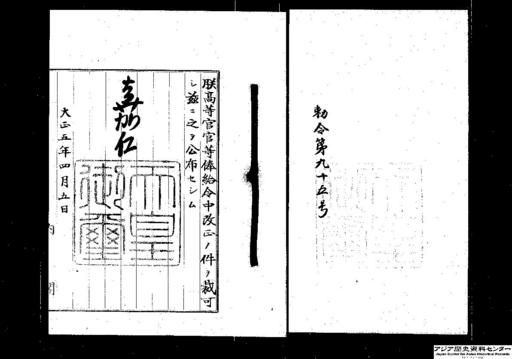 勅令第九十五号
朕高等官官等俸給令中改正ノ件ヲ裁可
シ茲ニ之ヲ公布セシム
嘉仁
天皇御璽
大正五年四月五日
内閣
アジア歴史資料センター
Japan Center for Asian Historical Records